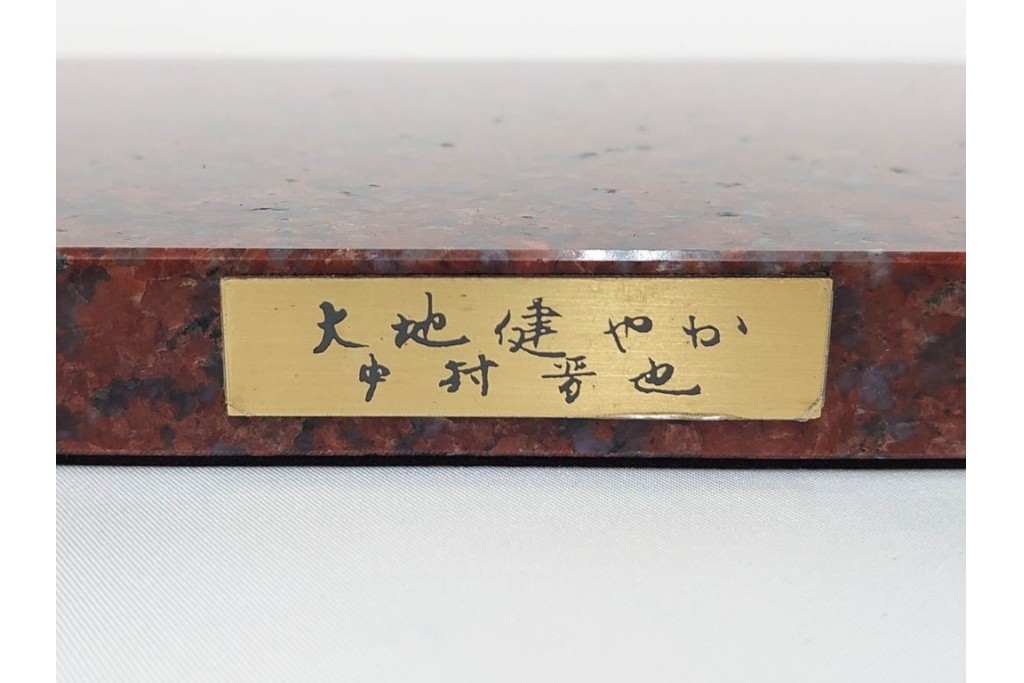 大地健やか
中村晋也